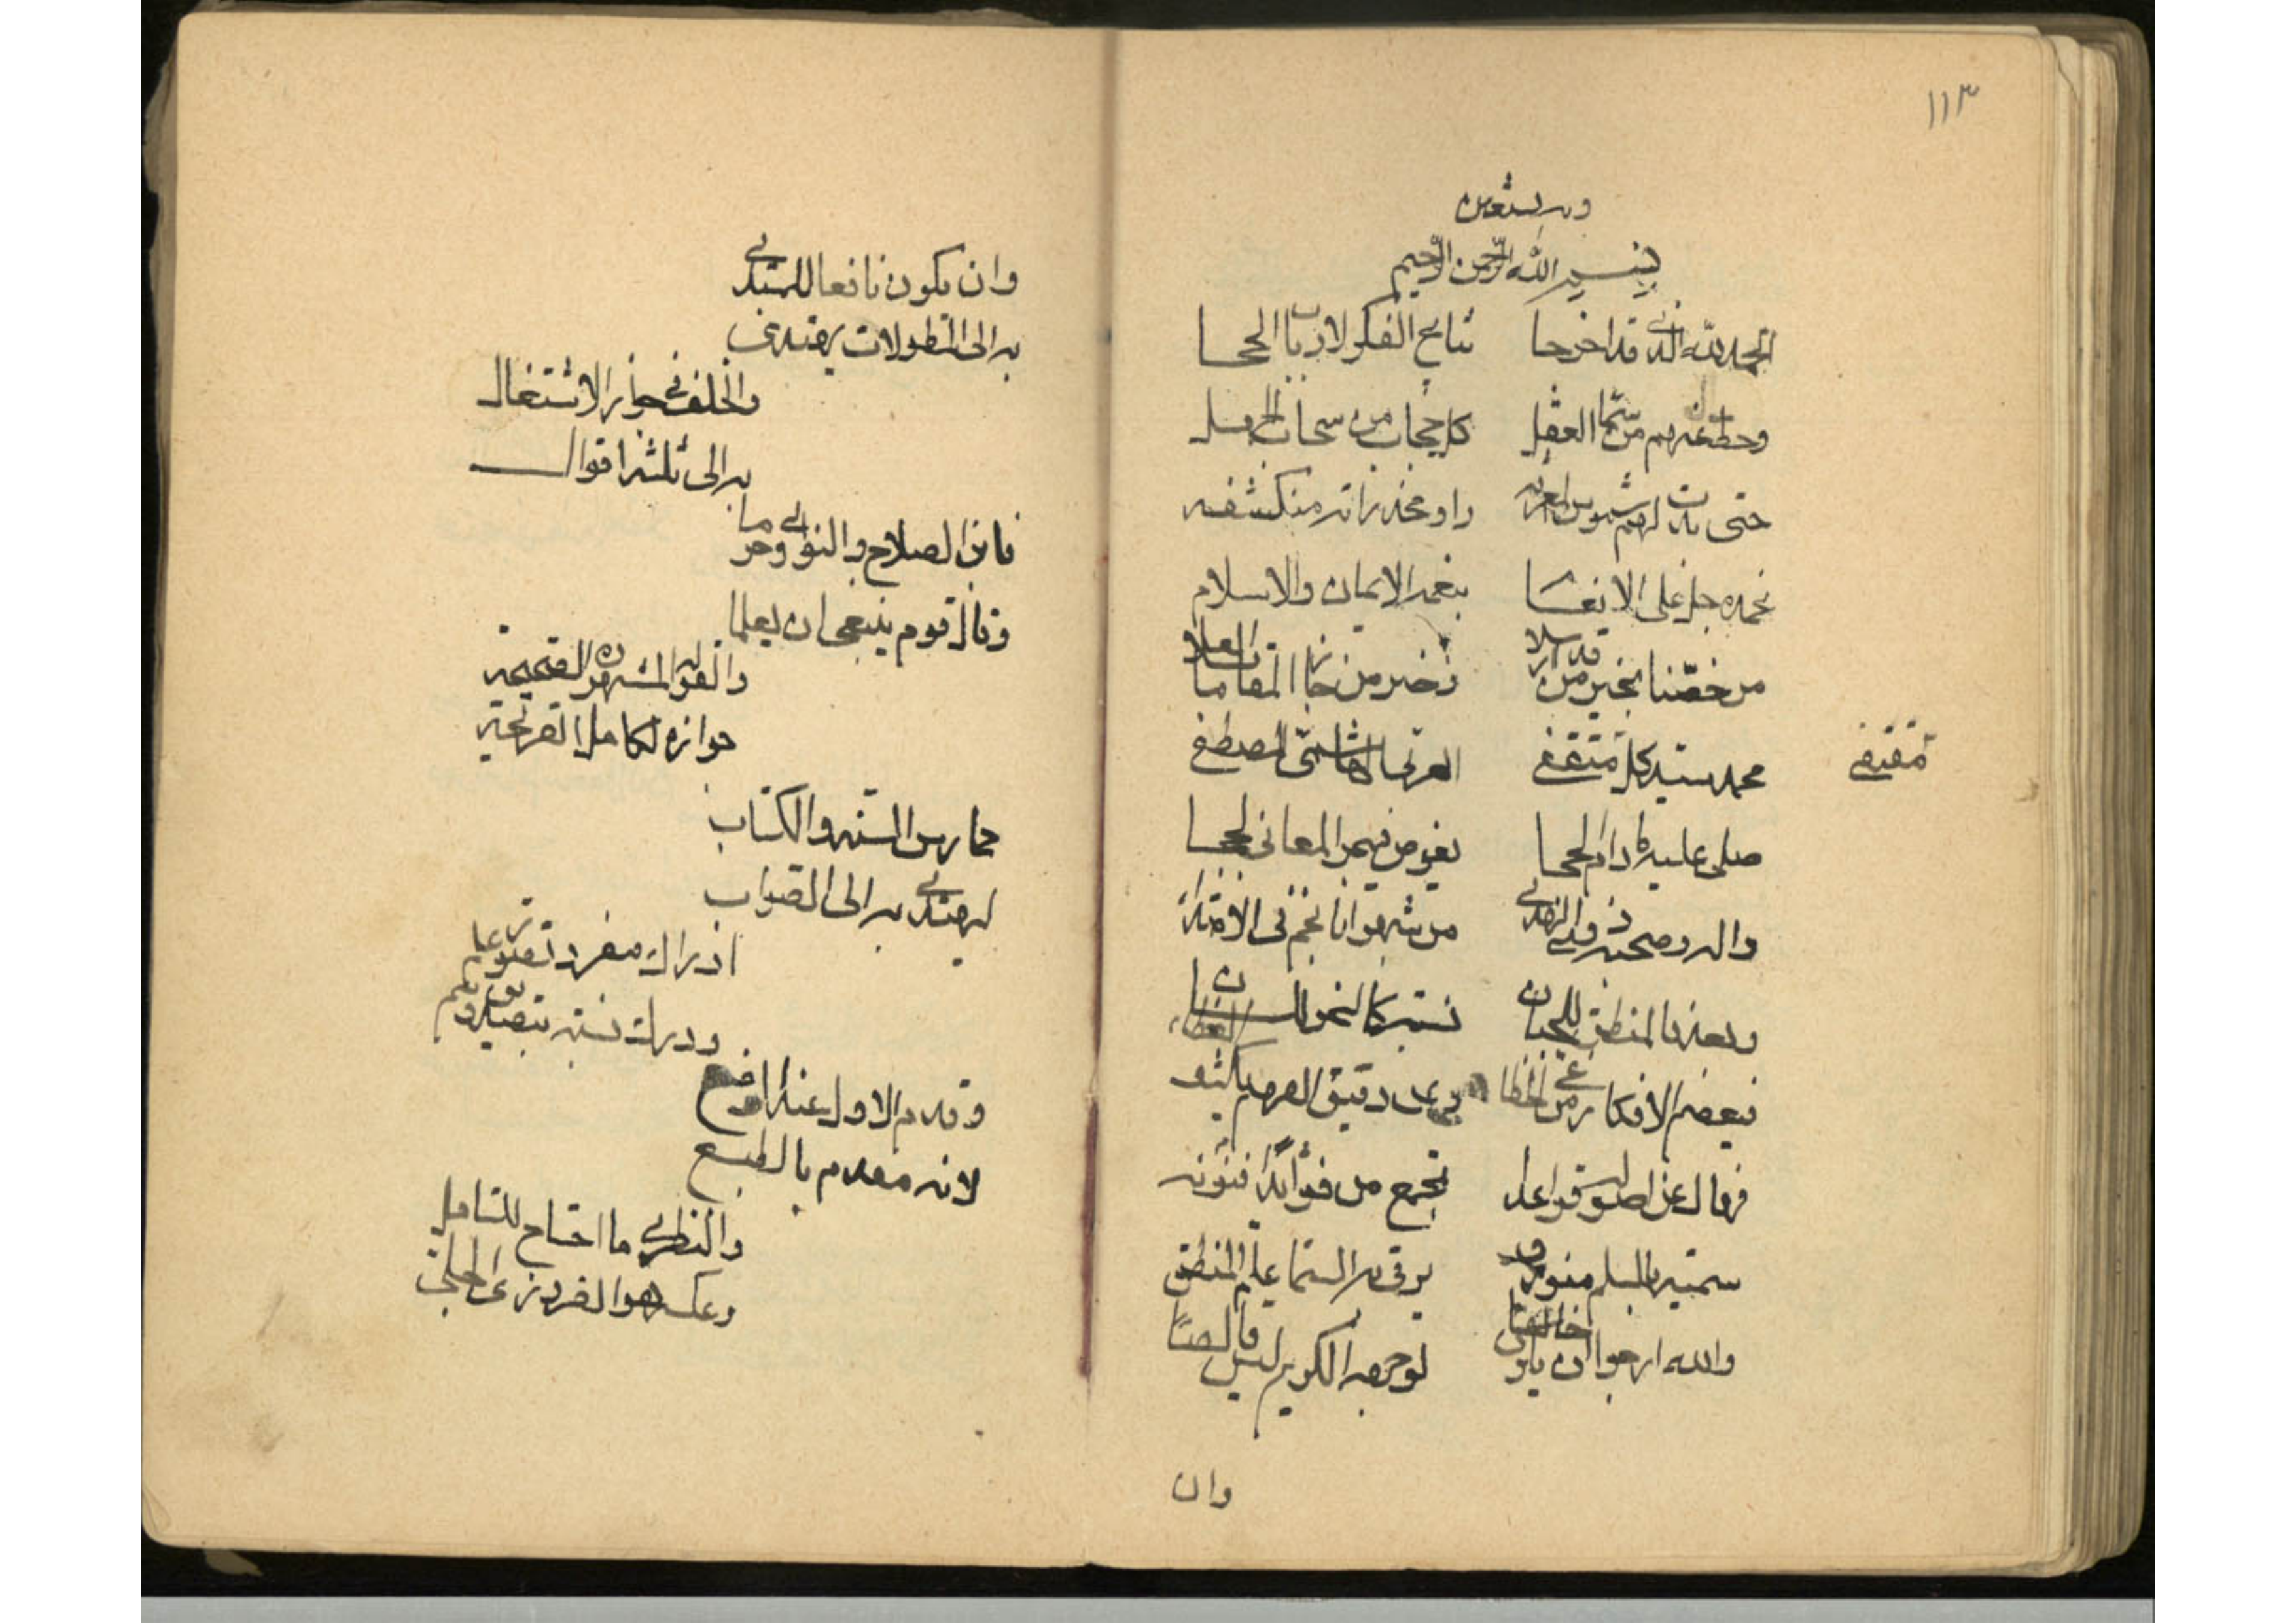 ١١٣
وبه نستعين
بسم الله الرحمن الرحيم
الحمد لله الذي قد اخرجا نتائج الفكر لارباب الحجا
وحط عنهم من سما العقل كل حجاب من سحاب الجهل
حتى بدت لهم شموس المعرفه راو مخدراتها منكشفه
نحمده جل على الانعام بنعمة الايمان والاسلام
من خصنا بخير من قد ارسلا وخير من حاز المقامات العلا
محمد سيد كل مقتفى العربي الهاشمي المصطفى
مقتفى
صلى عليه ما دام الحجا يخوض من بحر المعاني لججا
واله وصحبه ذوي الهدى من شبهوا بانجم في الاهتدا
وبعد فالمنطق للجنان نسبته كالنحو للسان
فيعصم الافكار عن غي الخطا وعن دقيق الفهم يكشف
فهاك من اصوله قواعدا تجمع من فنونه فوائدا
سميته بالسلم المنورق يرقى به سما علم المنطق
والله ارجو ان يكون خالصا لوجهه الكريم ليس قالصا
وان
وان يكون نافعا للمبتدي
به الى المطولات يهتدي
والخلف في جواز الاشتغال
به الى ثلثة اقوال
فابن الصلاح والنواوي حرما
وقال قوم ينبغي ان يعلما
والقولة المشهورة الصحيحة
جوازه لكامل القريحة
ممارس السنة والكتاب
ليهتدي به الى الصواب
ادراك مفرد تصورا علم
ودرك نسبة بتصديق وسم
وقدم الاول عند الوضع
لانه مقدم بالطبع
والنظري ما احتاج للتامل
وعكسه هو الضروري الجلي